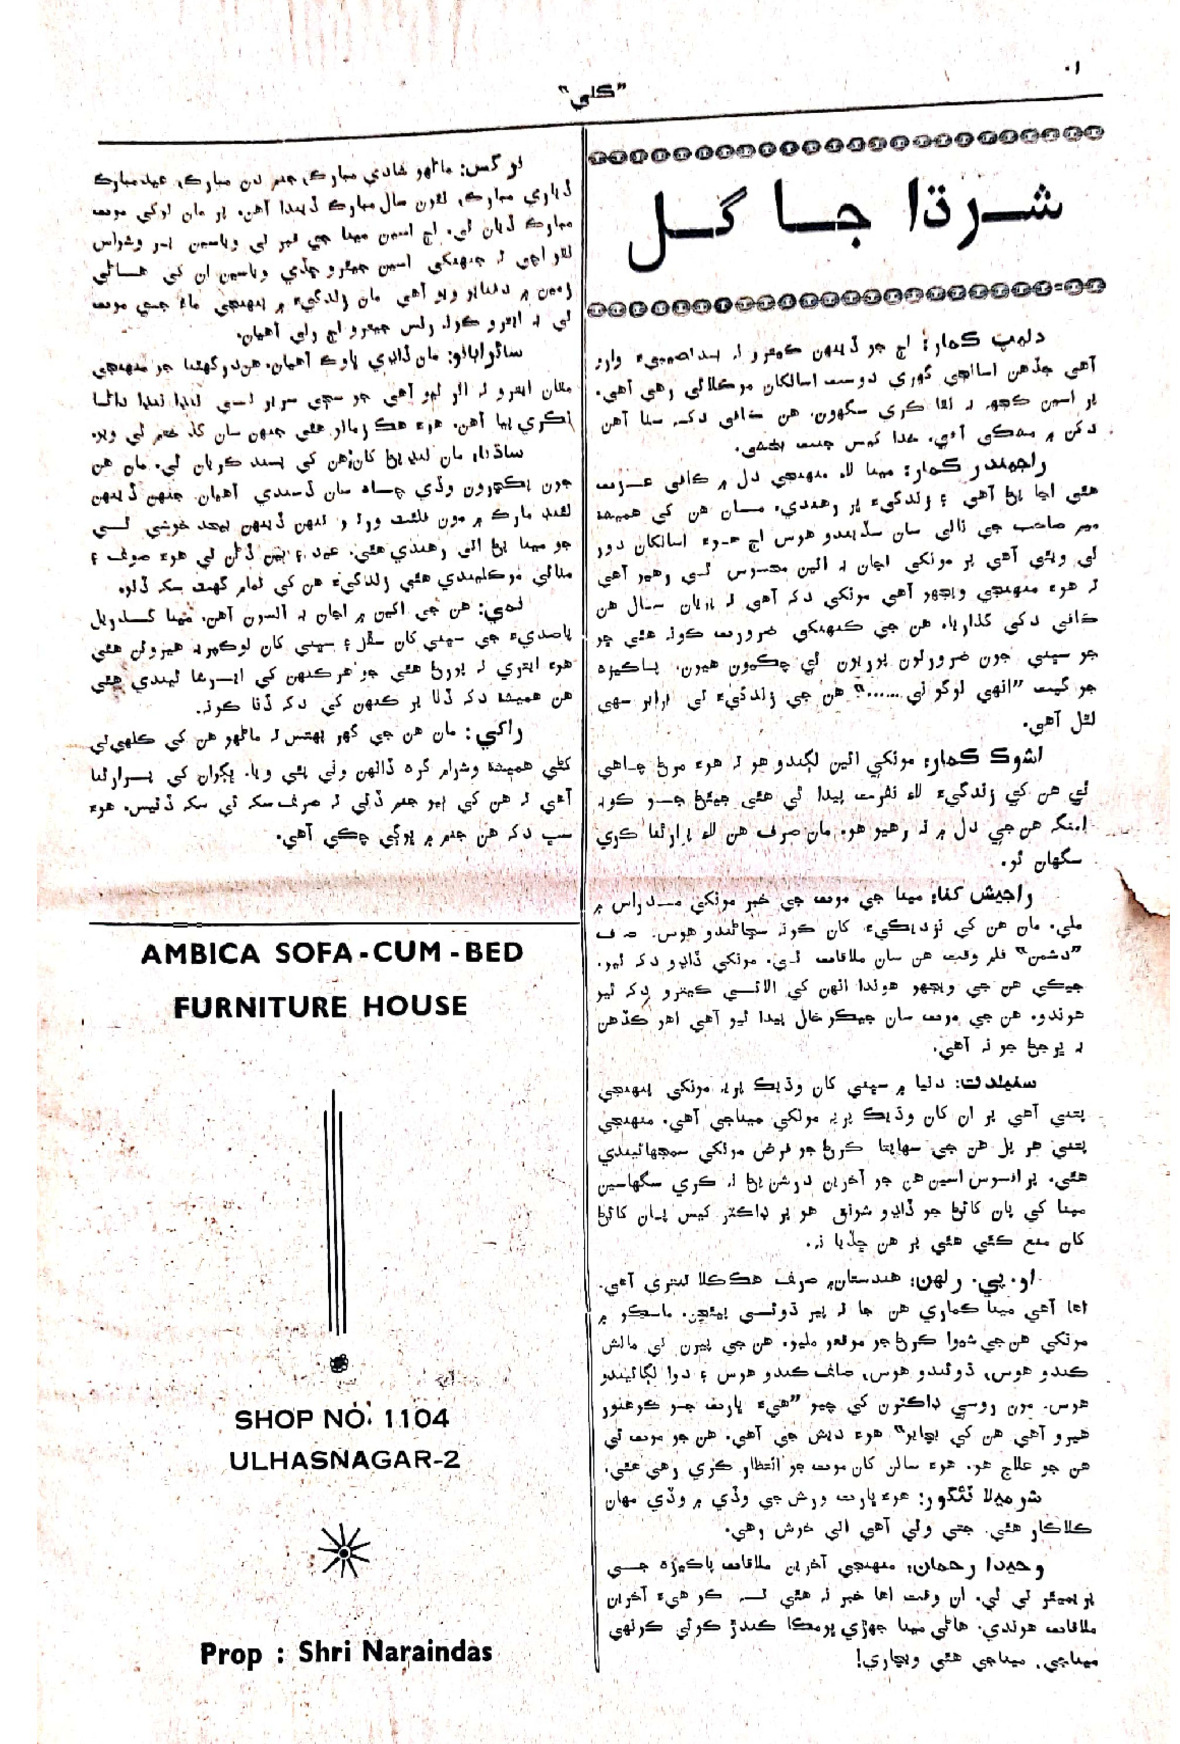 ۱۰
”ڪلي“
شرڌا جا گل
دليپ ڪمار: اڄ جو ڏينهن ڪيترو نه بدنصيبيءَ وارو
آهي جڏهن اسانجي گهري دوست اسانکان موڪلائي رهي آهي.
پر اسين ڪجهہ نہ ٿا ڪري سگهون. هن ڪافي دک سٺا آهن
دکن ۾ مشڪي آهي. خدا کيس جنت بخشي.
راجيندر ڪمار: مينا لاءِ منهنجي دل ۾ ڪافي عزت
هئي اڃا پڻ آهي ۽ زندگيءَ ڀر رهندي. مان هن کي هميشہ
مير صاحب جي نالي سان سڏيندو هوس اڄ هوءَ اسانکان دور
ٿي ويئي آهي پر مونکي اڃان بہ ائين محسوس ٿي رهيو آهي
تہ هوءَ منهنجي ويجهو آهي مونکي دک آهي تہ ٻارهان سال هن
ڪافي دکي گذاريا. هن جي ڪنهنکي ضرورت ڪونہ هئي ڇو
جو سڀني جون ضرورتون پوريون ٿي چڪيون هيون. پاڪيزه
جو گيت ”انهي لوگو ني......“ هن جي زندگيءَ تي برابر سهي
لٿل آهي.
اشوڪ ڪمار: مونکي ائين لڳندو هو تہ هوءَ مرڻ چاهي
ٿي هن کي زندگيءَ لاءِ نفرت پيدا ٿي هئي جيئڻ جو ڪو بہ
امنگ هن جي دل ۾ نہ رهيو هو. مان صرف هن لاءِ پرارٿنا ڪري
سگهان ٿو.
راجيش کنا: مينا جي موت جي خبر مونکي مدراس ۾
ملي. مان هن کي نزديڪيءَ کان ڪونہ سڃاڻندو هوس. صرف
”دشمن“ فلم وقت هن سان ملاقات ٿي. مونکي ڏاڍو دک ٿيو.
جيڪي هن جي ويجهو هوندا انهن کي الائي ڪيترو دک ٿيو
هوندو. هن جي موت سان جيڪو خال پيدا ٿيو آهي اهو ڪڏهن
بہ ڀرجڻ جو نہ آهي.
سنيلدت: دنيا ۾ سڀني کان وڌيڪ پريہ مونکي پنهنجي
پتني آهي پر ان کان وڌيڪ پريہ مونکي ميناجي آهي. منهنجي
پتني هر پل هن جي سهايتا ڪرڻ جو فرض مونکي سمجهائيندي
هئي. پر افسوس اسين هن جو آخرين درشن پڻ نہ ڪري سگهاسين
مينا کي پان کائڻ جو ڏاڍو شونق هو پر ڊاڪٽر کيس پان کائڻ
کان منع ڪئي هئي پر هن ڇڏيا نہ.
او. پي. رلهن: هندستان ۾ صرف هڪ ڪلا نيتري آهي.
اها آهي مينا ڪماري هن جا تہ پير ڌوئي پيئجن. ماسڪو ۾
مونکي هن جي شيوا ڪرڻ جو موقعو مليو. هن جي پيرن تي مالش
ڪندو هوس، ڌوئيندو هوس، صاف ڪندو هوس ۽ دوا لڳائيندو
هوس. مون روسي ڊاڪٽرن کي چيو ”هيءَ ڀارت جو ڪوهنور
هيرو آهي هن کي بچايو“ هوءَ ديش جي آهي. هن جو موت ئي
هن جو علاج هو. هوءَ سالن کان موت جو انتظار ڪري رهي هئي.
شرميلا ٽئگور: هوءَ ڀارت ورش جي وڏي ۾ وڏي مهان
ڪلاڪار هئي. جتي وئي آهي اتي خوش رهي.
وحيدا رحمان: منهنجي آخرين ملاقات پاڪيزه جي
پريميئر تي ٿي. ان وقت اها خبر نہ هئي تہ ڪو هيءَ آخرين
ملاقات هوندي. هاڻي مينا جهڙي ڀومڪا ڪندڙ ڪوئي ڪونهي
ميناجي، ميناجي هئي ويچاري!
نرگس: ماڻهو شادي مبارڪ، جنم دن مبارڪ، عيد مبارڪ
ڏياري مبارڪ، نئون سال مبارڪ ڏيندا آهن. پر مان توکي موت
مبارڪ ڏيان ٿي. اڄ اسين مينا جي قبر تي وياسين پر وشواس
نٿو اچي تہ جنهنکي اسين جيئرو ڇڏي وياسين ان کي هاڻي
زمين ۾ دفنايو ويو آهي مان زندگيءَ ۾ پنهنجي ماءُ جي موت
تي بہ ايترو ڪونہ رئس جيترو اڄ رئي آهيان.
سائرابانو: مان ڏاڍي ڀاوڪ آهيان. هن دور گهٽنا جو منهنجي
مٿان ايترو تہ اثر ٿيو آهي جو سڄي سرير تي ننڍا ننڍا داڻا
نڪري پيا آهن. هوءَ هڪ زمانو هئي جنهن سان گڏ ختم ٿي ويو.
ساڌنا: مان ننڍپڻ کان هن کي پسند ڪريان ٿي. مان هن
جون پڪچرون وڏي چاه سان ڏسندي آهيان جنهن ڏينهن
لنڪنگ مارڪ ۾ مون فلئٽ ورتو تنهن ڏينهن بيحد خوشي ٿي
جو مينا پڻ اتي رهندي هئي. عيد ۽ ٻين ڏڻن تي هوءَ صوف ۽
مٺائي موڪليندي هئي زندگيءَ هن کي تمام گهٽ سک ڏنو.
نمي: هن جي اکين ۾ اڃان بہ آنسون آهن. مينا گذريل
پاصديءَ جي سڀني کان سڦل ۽ سڀني کان لوڪپريہ هيروئن هئي
هوءَ ايتري تہ پورڻ هئي جو هرڪنهن کي ايرشا ٿيندي هئي
هن هميشہ دک ڏٺا پر ڪنهن کي دک ڏنا ڪونہ.
راکي: مان هن جي گهر پهتس تہ ماڻهو هن کي ڪلهي تي
کڻي هميشہ وشرام گره ڏانهن وٺي پئي ويا. ڀڳوان کي پرارٿنا
آهي تہ هن کي ٻيو جنم ڏئي تہ صرف سک ئي سک ڏئيس. هوءَ
سڀ دک هن جنم ۾ ڀوڳي چڪي آهي.
AMBICA SOFA-CUM-BED
FURNITURE HOUSE
SHOP NO. 1104
ULHASNAGAR-2
Prop : Shri Naraindas